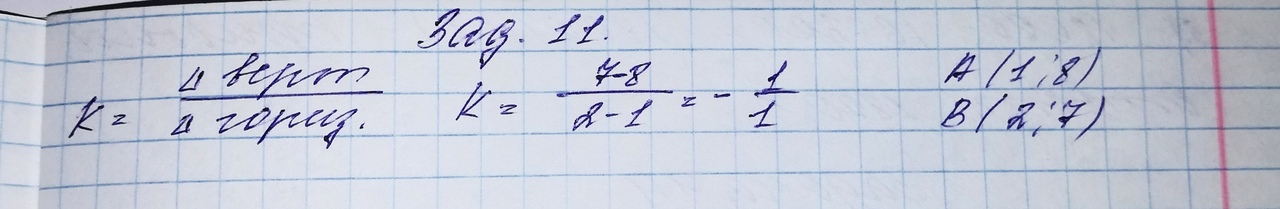 Зад. 11.
K = ц верт / ц гориз. K = 7-8 / 2-1 = - 1 / 1 A (1; 8)
B (2; 7)